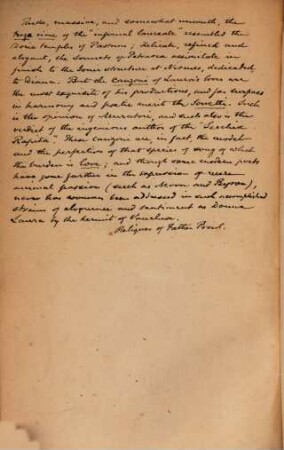 Rude, massive, and somewhat uncouth, the
terza rima of the "infernal laureate" resembles the
Doric temples of Paestum; delicate, refined and
elegant, the Sonnets of Petrarca assimilate in
finish to the Ionic structure at Nismes, dedicated
to Diana. But the canzoni of Laura's lover are
the most exquisite of his productions, and far surpass
in harmony and poetic merit the Sonetti. Such
is the opinion of Muratori, and such also is the
verdict of the ingenious author of the "Secchia
Rapita". These canzoni are, in fact, the model
and the perfection of that species of song of which
the burden is love; and though some modern poets
have gone farther in the expression of mere
animal passion (such as Moore and Byron),
never has woman been addressed in such accomplished
strains of eloquence and sentiment as Donna
Laura by the hermit of Vaucluse.
Reliques of Father Prout.